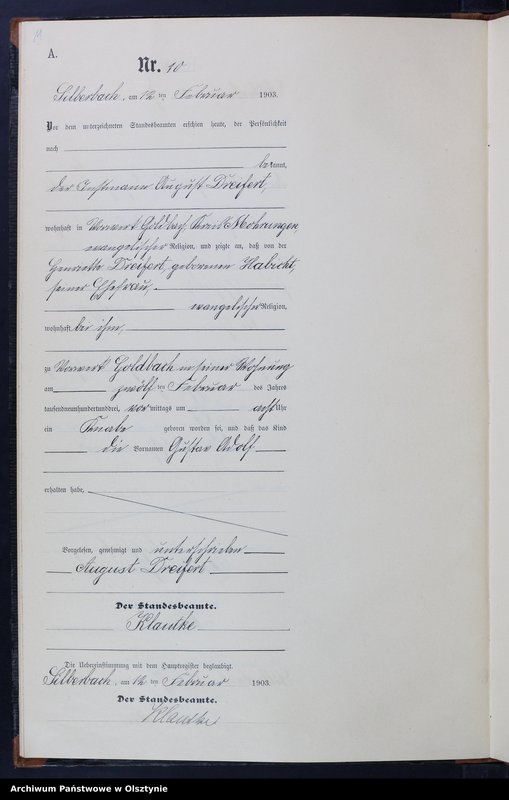 A.
Nr. 10
Silberbach, am 12 ten Februar 1903.
Vor dem unterzeichneten Standesbeamten erschien heute, der Persönlichkeit
nach
bekannt,
der Instmann August Dreifert,
wohnhaft in Vorwerk Goldbach, Kreis Mohrungen,
evangelischer Religion, und zeigte an, daß von der
Henriette Dreifert, geborenen Habicht,
seiner Ehefrau,
evangelischer Religion,
wohnhaft bei ihm,
zu Vorwerk Goldbach in seiner Wohnung
am zwölf ten Februar des Jahres
tausendneunhundertunddrei, vor mittags um acht Uhr
ein Knabe geboren worden sei, und daß das Kind
die Vornamen Gustav Adolf
erhalten habe,
Vorgelesen, genehmigt und unterschrieben
August Dreifert
Der Standesbeamte.
Klautke
Die Uebereinstimmung mit dem Hauptregister beglaubigt.
Silberbach, am 12 ten Februar 1903.
Der Standesbeamte.
Klautke
Archiwum Państwowe w Olsztynie